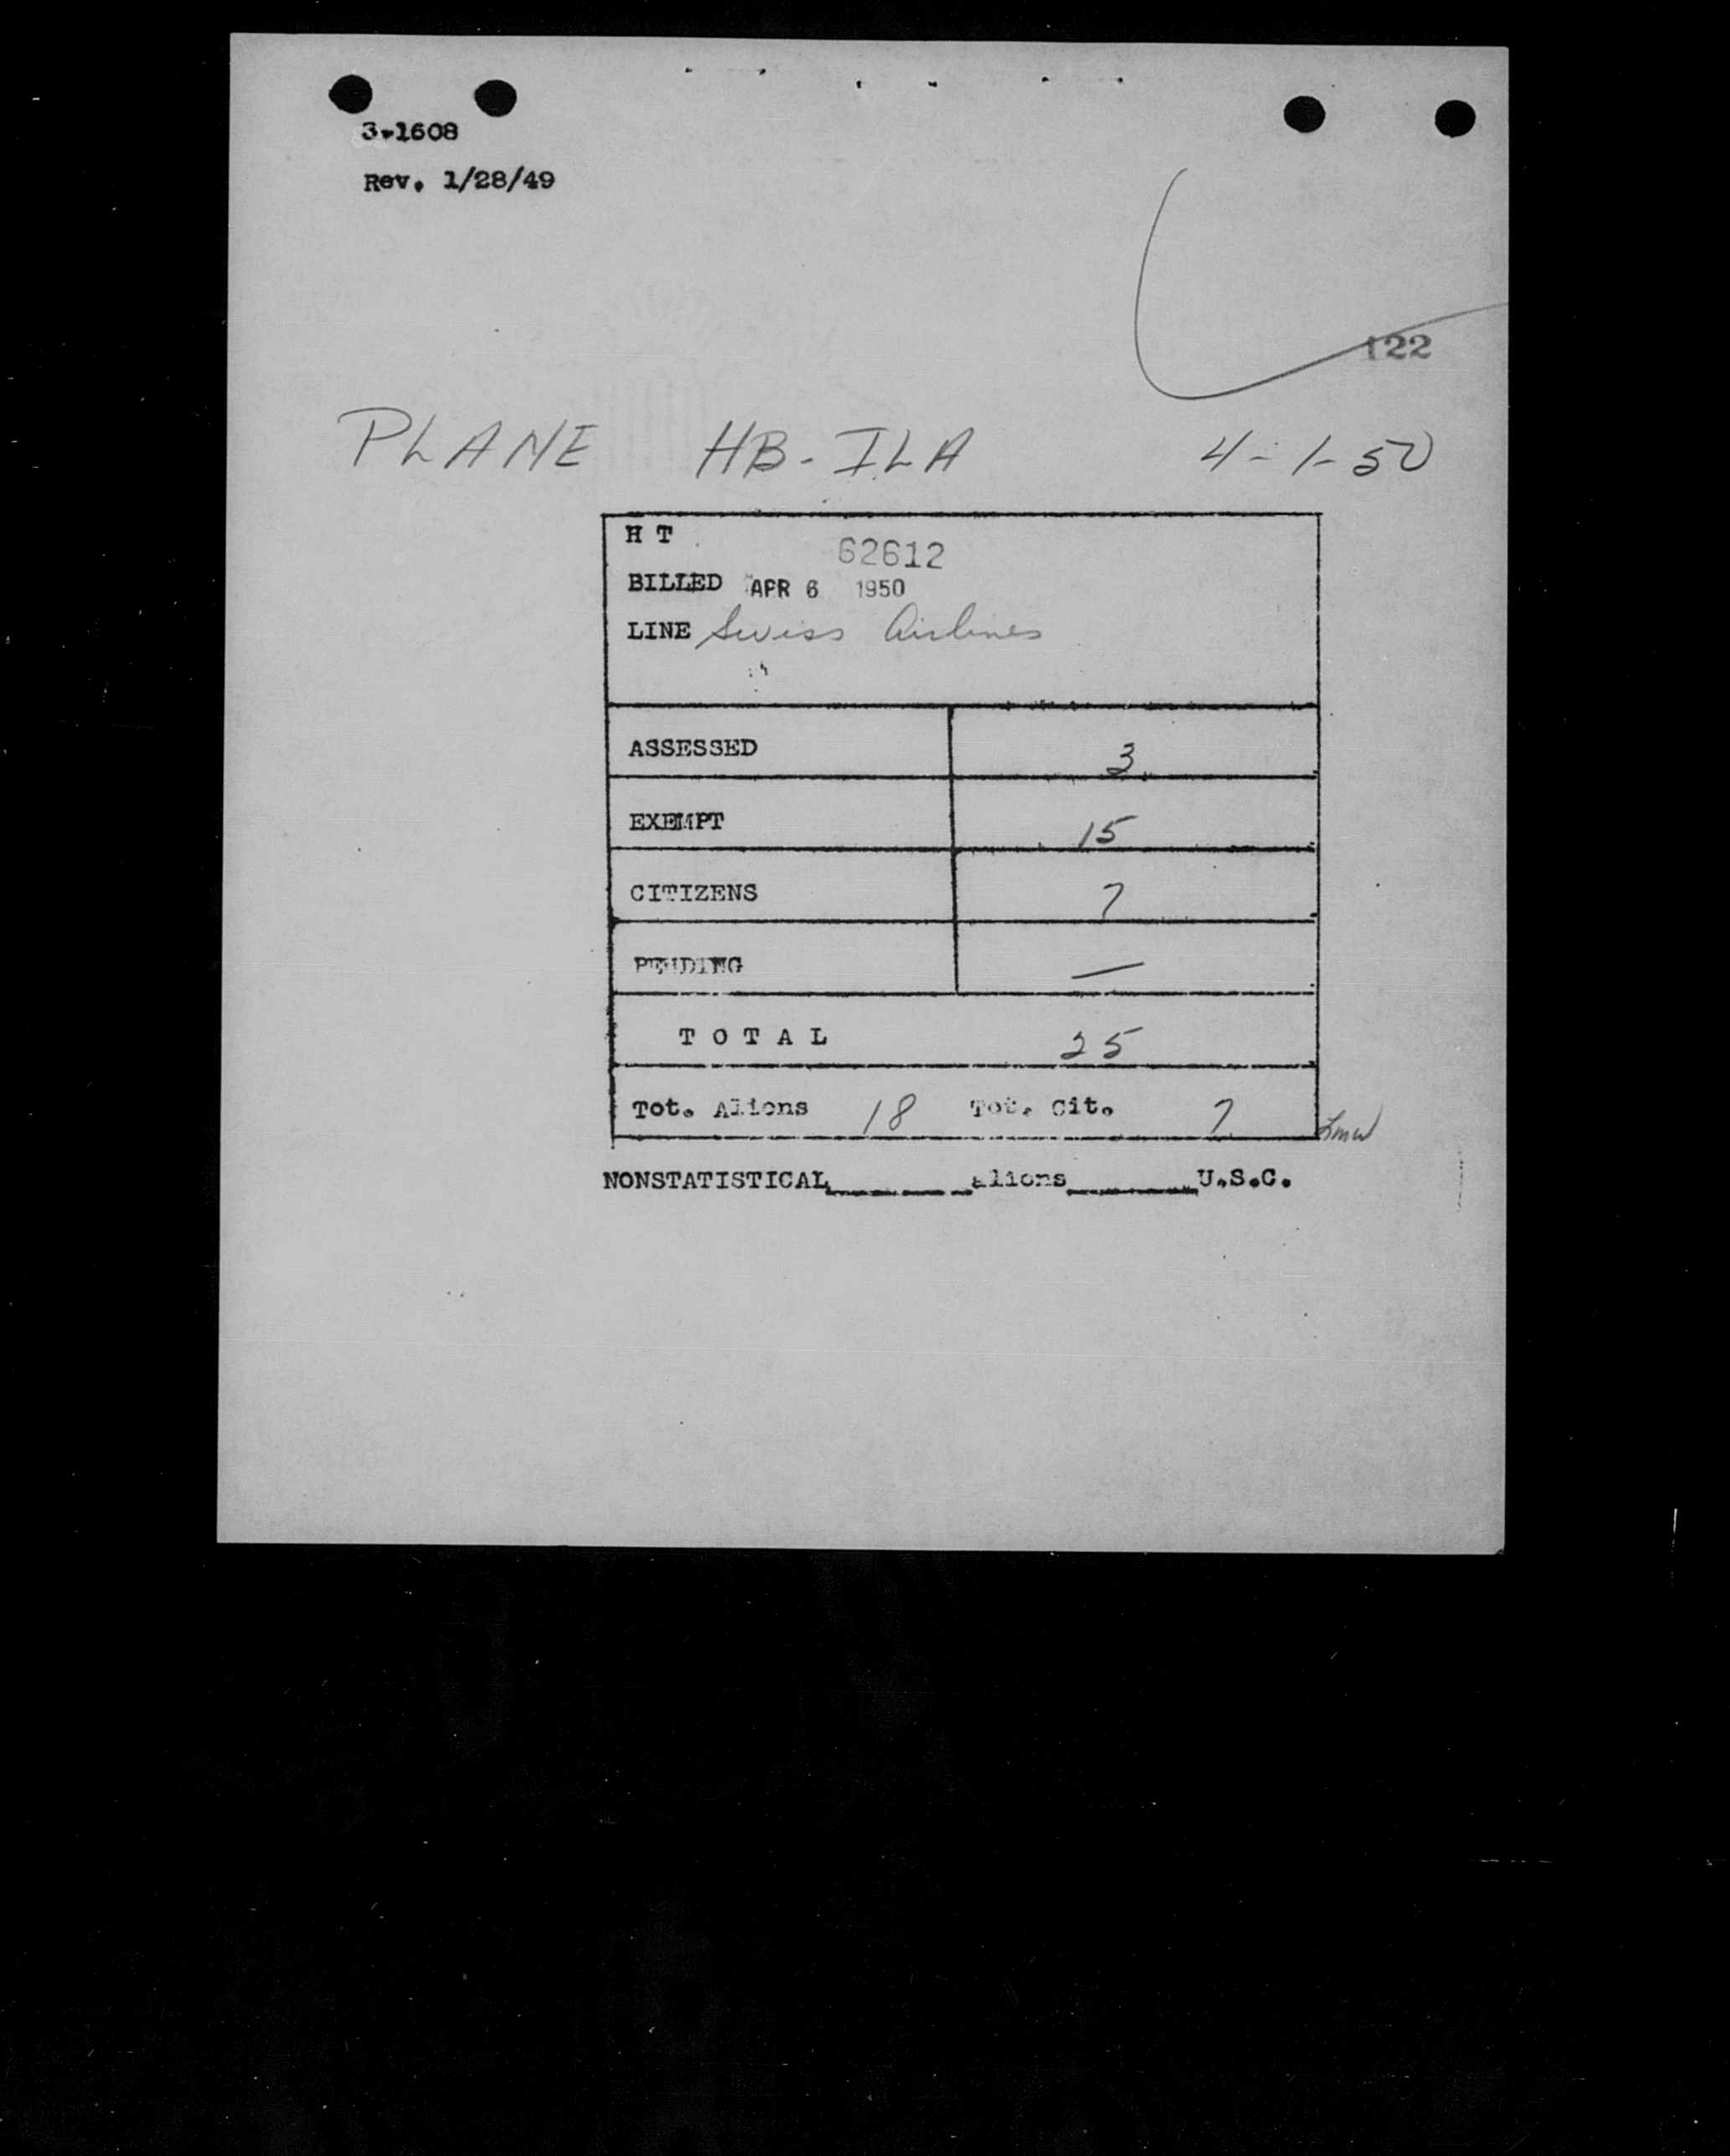 3-1608
Rev. 1/28/49
122
PLANE HB-ILA 4-1-50
H T 62612
BILLED APR 6 1950
LINE Swiss Airlines
ASSESSED 3
EXEMPT 15
CITIZENS 7
PENDING —
T O T A L 25
Tot. Aliens 18 Tot. Cit. 7
NONSTATISTICAL______aliens______U.S.C.